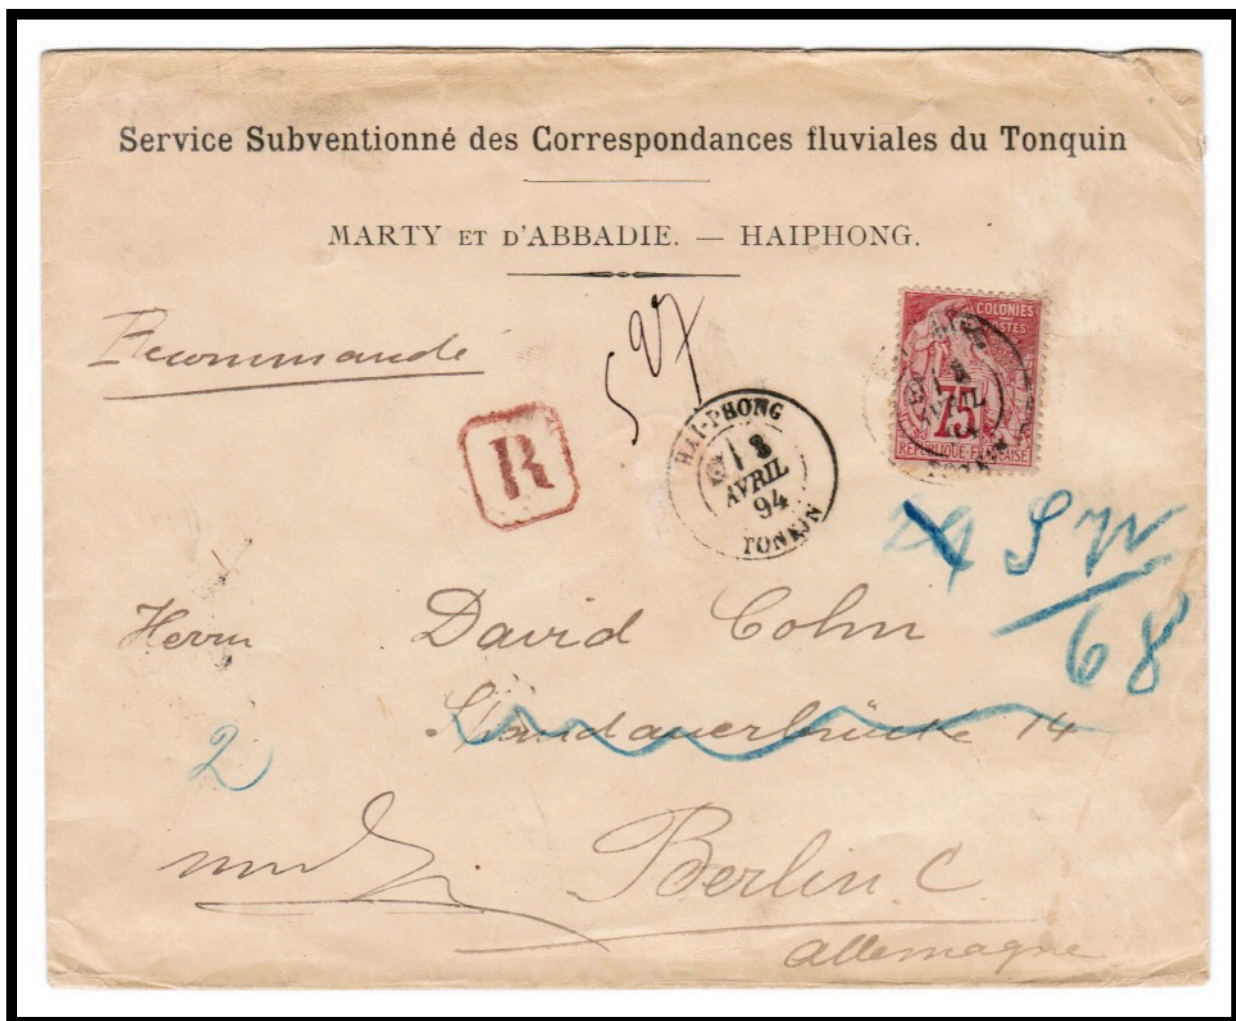 Service Subventionné des Correspondances fluviales du Tonquin
MARTY ET D'ABBADIE. — HAIPHONG.
COLONIES
POSTES
75
RÉPUBLIQUE FRANÇAISE
Recommandé
597
R
HAI-PHONG
AVRIL
94
TONKIN
AVRIL
68
Herrn David Cohn
Spandauerbrücke 14
2
Berlin C
Allemagne